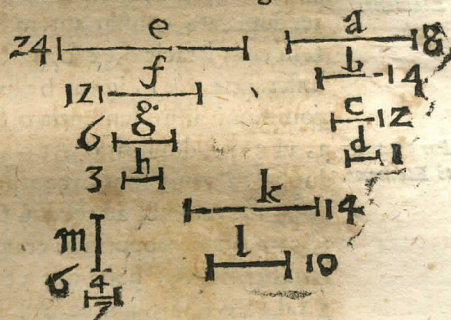 24 e a 8
12 f b 4
6 g c 2
3 h d 1
k 14
m l 10
6 4/7